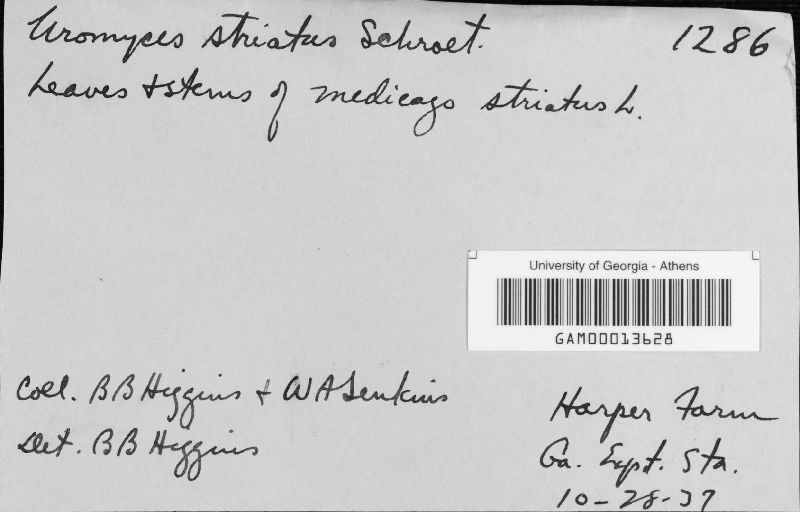 Uromyces striatus Schroet. 1286
Leaves & stems of Medicago striatus L.
University of Georgia - Athens
GAM00013628
Coll. B B Higgins & W A Jenkins
Det. B B Higgins
Harper Farm
Ga. Expt. Sta.
10-28-37